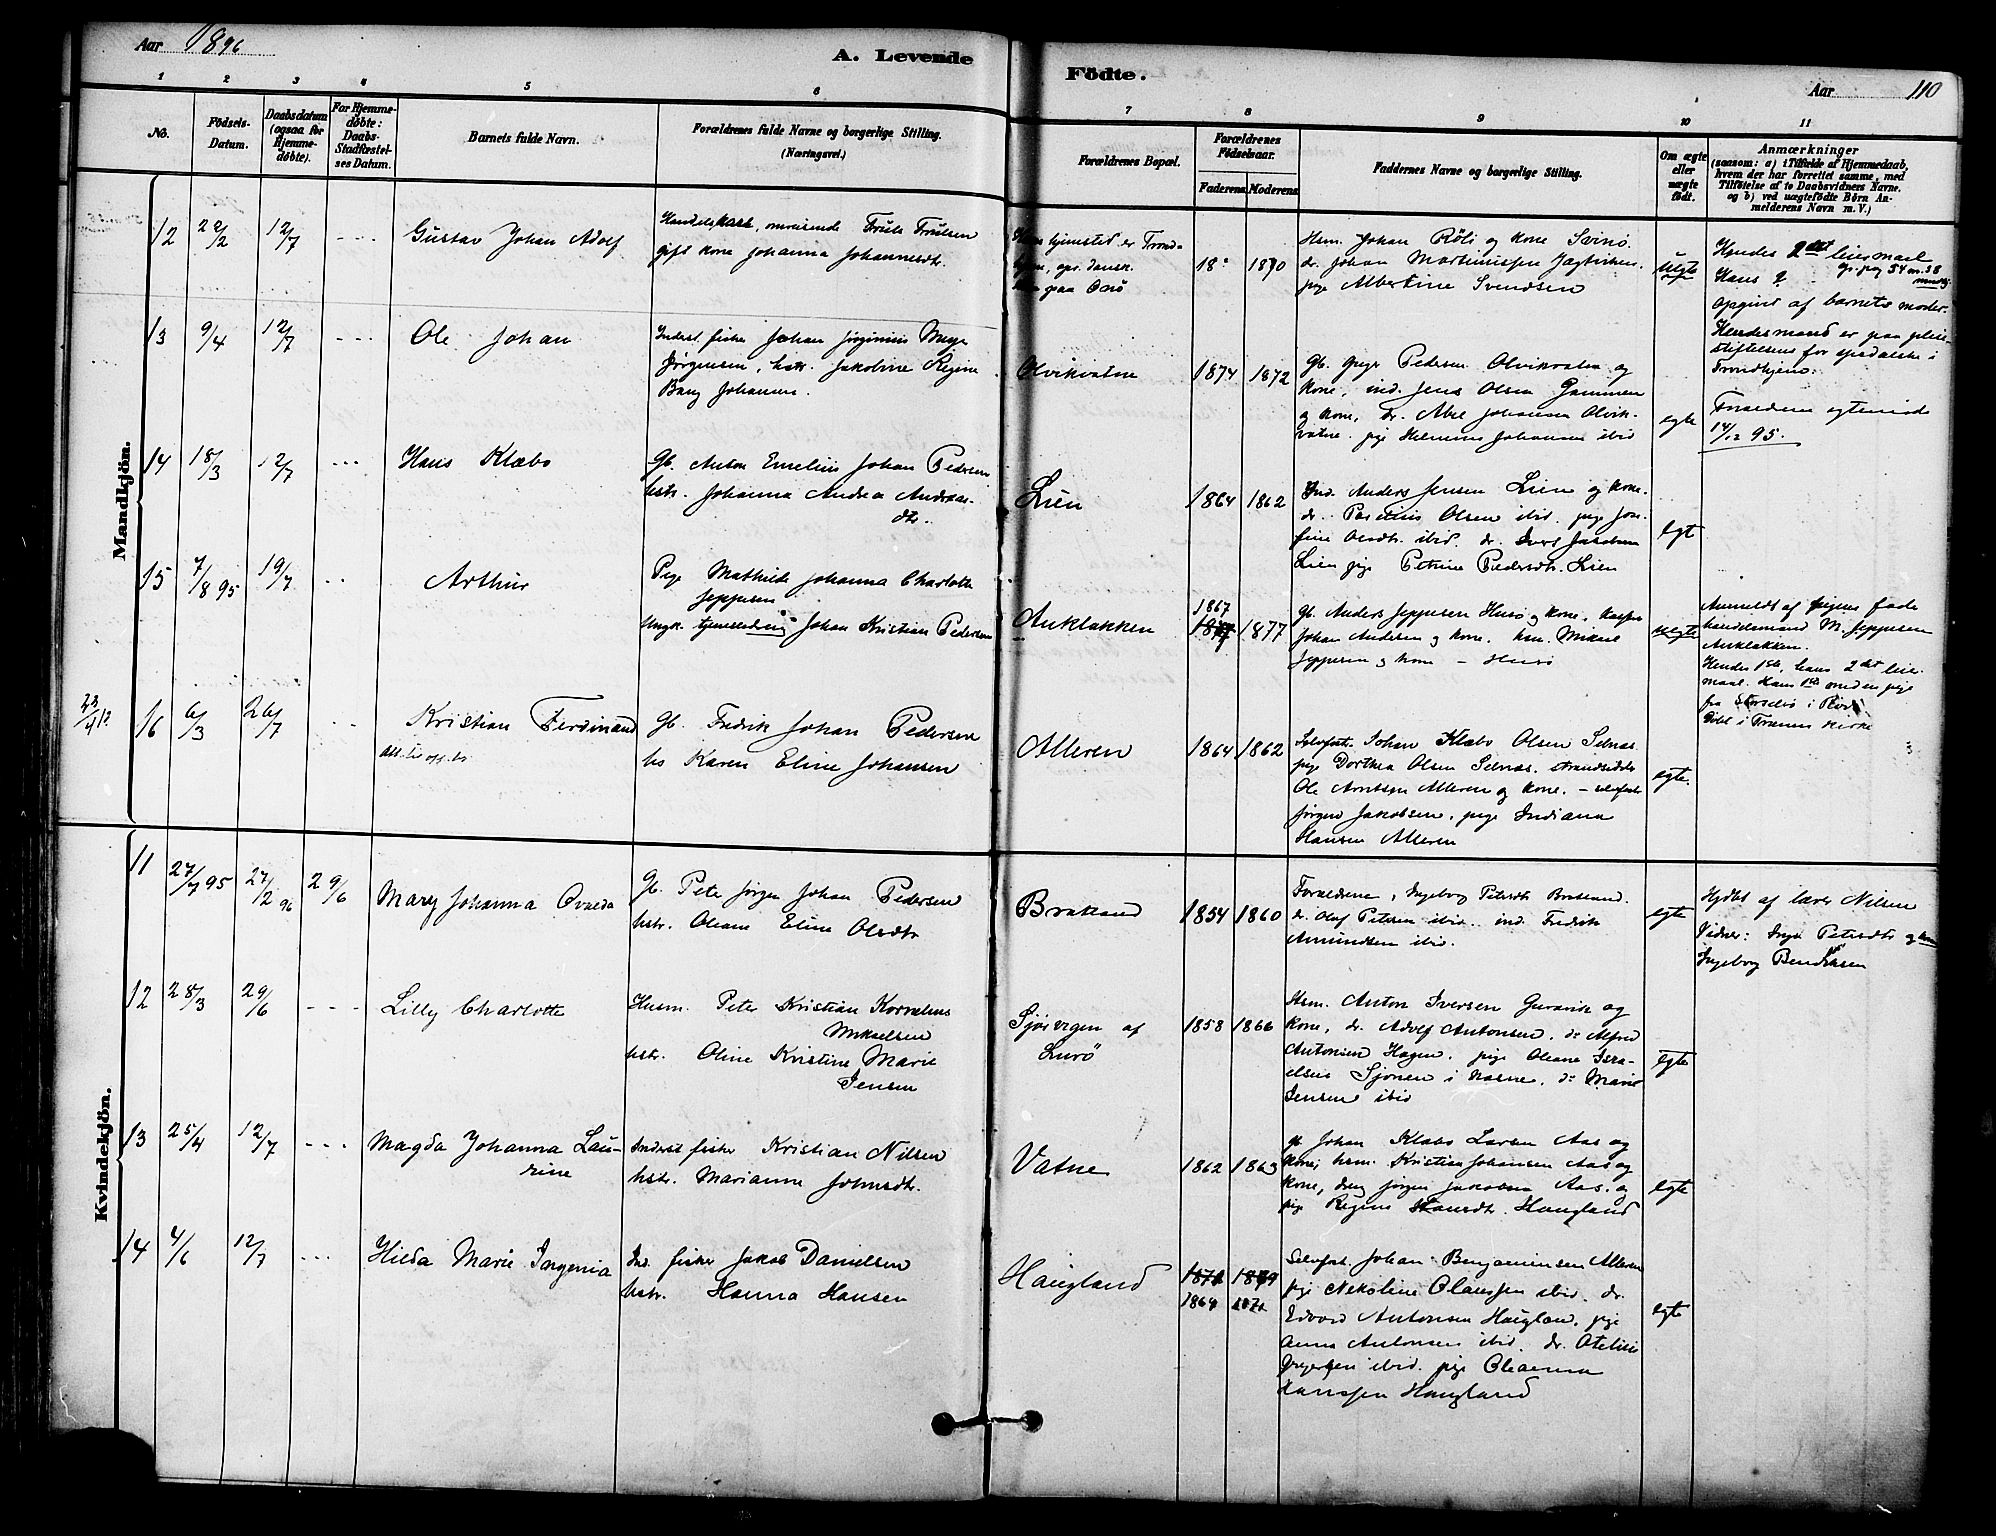 Aar 1896
A. Levende
Födte.
Aar 110
1 2 3 4 5 6
7 8 9 10 11
No.
Födsels-
Datum.
Daabsdatum
(ogsaa for
Hjemme-
døbte).
For Hjemme-
døbte:
Daabs-
Stadfæstel-
ses Datum.
Barnets fulde Navn.
Forældrenes fulde Navne og borgerlige Stilling.
(Næringsvei.)
Forældrenes Bopæl.
Forældrenes
Födselsaar.
Faderens. Moderens.
Faddernes Navne og borgerlige Stilling.
Om ægte
eller
uægte
født.
Anmærkninger
(saasom: a) i Tilfælde af Hjemmedaab,
hvem der har forrettet samme, med
Tilføielse af to Daabsvidners Navne.
og b) ved uægtefødte Børn An-
melderens Navn m. V.)
Mandkjön.
12 22/2 12/7 - - - Gustav Johan Adolf
omreisende Truls Trulsen
gift kone Johanna Johannesdtr.
tjenested er Trond-
18 1870
Hsm. Johan Röli og kone Svinö.
dr. Johan Martinussen
pige Albertine Svendsen
uegte
Hendes 2det leiermaal
Hans ?
Opgivet af barnets moder.
Hendes mand er paa pleie-
stiftelsen for spedalske i
Trondhjem.
13 9/4 12/7 - - - Ole Johan
Inderst fisker Johan Jørginius Meyer
Jørgensen, hstr. Jakobine Regine
Bang Johansen.
Olvikvatne
1874 1872
Gb. Pedersen Olvikvatn og
kone, ind. Jens Olsen Gammen
og kone, dr. Abel Johansen Olvik-
vatne. pige Helmine Johansen ibid
egte
Foreldrene egteviede
14/12 95.
14 18/3 12/7 - - - Hans Klæbo
Gb. Anton Emelius Johan Pedersen
hstr. Johanna Andrea Andreas-
dtr.
Lien
1864 1862
Ind. Anders Jensen Lien og kone.
dr. Olsen ibid. pige Jos-
fine Olsdtr. ibid. dr. Ivers Jakobsen
Lien pige Petrine Pedersdtr. Lien
egt
15 7/8 95 19/7 - - Arthur
Pige Mathilde Johanna Charlotte
Jeppesen
Ungk. Johan Kristian Pedersen
Auklakken
1867
1877 1877
Gb. Anders Jeppesen Husö og kone. Kasper
Johan Andersen og kone. hsm. Mikael
Jeppesen og kone - Husö
uegte
Anmeldt af pigens fader
handelsmand M. Jeppesen
Auklakken.
Hendes 1ste, hans 2det leier-
maal. Hans 1ste med en pige
fra i Rödö
Döbt i Trænens kirke
16 6/3 26/7 - - Kristian Ferdinand
Gb. Fredrik Johan Pedersen
hs Karen Eline Johansen
Alleren
1864 1862
Selvfostr. Johan Klæbo Olsen Selnæs.
pige Dorthea Olsen Selnæs. strandsidder
Ole Arntsen Alleren og kone. - selvfostr
Jørgen Jakobsen. pige Indiana
Hansen Alleren
egte.
Kvindekjön.
11 27/7 95 27/2 96 29/6 Mary Johanna Ovæda
Gb. Peter Jørgen Johan Pedersen
hstr. Oleane Eline Olsdtr
Bratland
1854 1860
Forældrene, Ingeborg Petersdtr Bratland.
dr. Olaf Petersen ibid. ind. Fredrik
Amundsen ibid.
egte
Hjdbt af lærer Nilsen
Vidner: Inga Petersdtr og
Ingeborg Bendiksen
12 28/3 29/6 - - - Lilly Charlotte
Husm. Peter Kristian Kornelius
Mikaelsen
hstr. Oline Kristine Marie
Jensen
Sjösvegen af
Lurö
1858 1866
Hsm. Anton Iversen og
kone, dr. Adolf Antonsen. do Alfred
Antonsen Hagen. pige Oleane Isra-
elsen Sjonen i Næsne. do Marie
Jensen ibid
egte
13 25/4 12/7 - - - Magda Johanna Lau-
rine
Inderst fisker Kristian Nilsen
hstr. Marianne Johnsdtr.
Vatne
1862 1863
gb Johan Klæbo Larsen Aas og
kone, hsm. Kristian Johansen Aas og
kone, dreng Jørgen Jakobsen Aas. og
pige Regine Hansdtr. Haugland
egte
14 4/6 12/7 - - - Hilda Marie Ingenia
Ind. fisker Jakob Danielsen
hstr. Hanna Hansen
Haugland
1871 1879
1864 1871
Selvfost. Johan Benjaminsen Alleren
pige Nekoline Olaussen ibid. dr.
Edvard Antonsen Hauglan. pige
Anna Antonsen ibid. dr. Otelius
ibid. pige Oleanna
Hanssen Haugland
egte